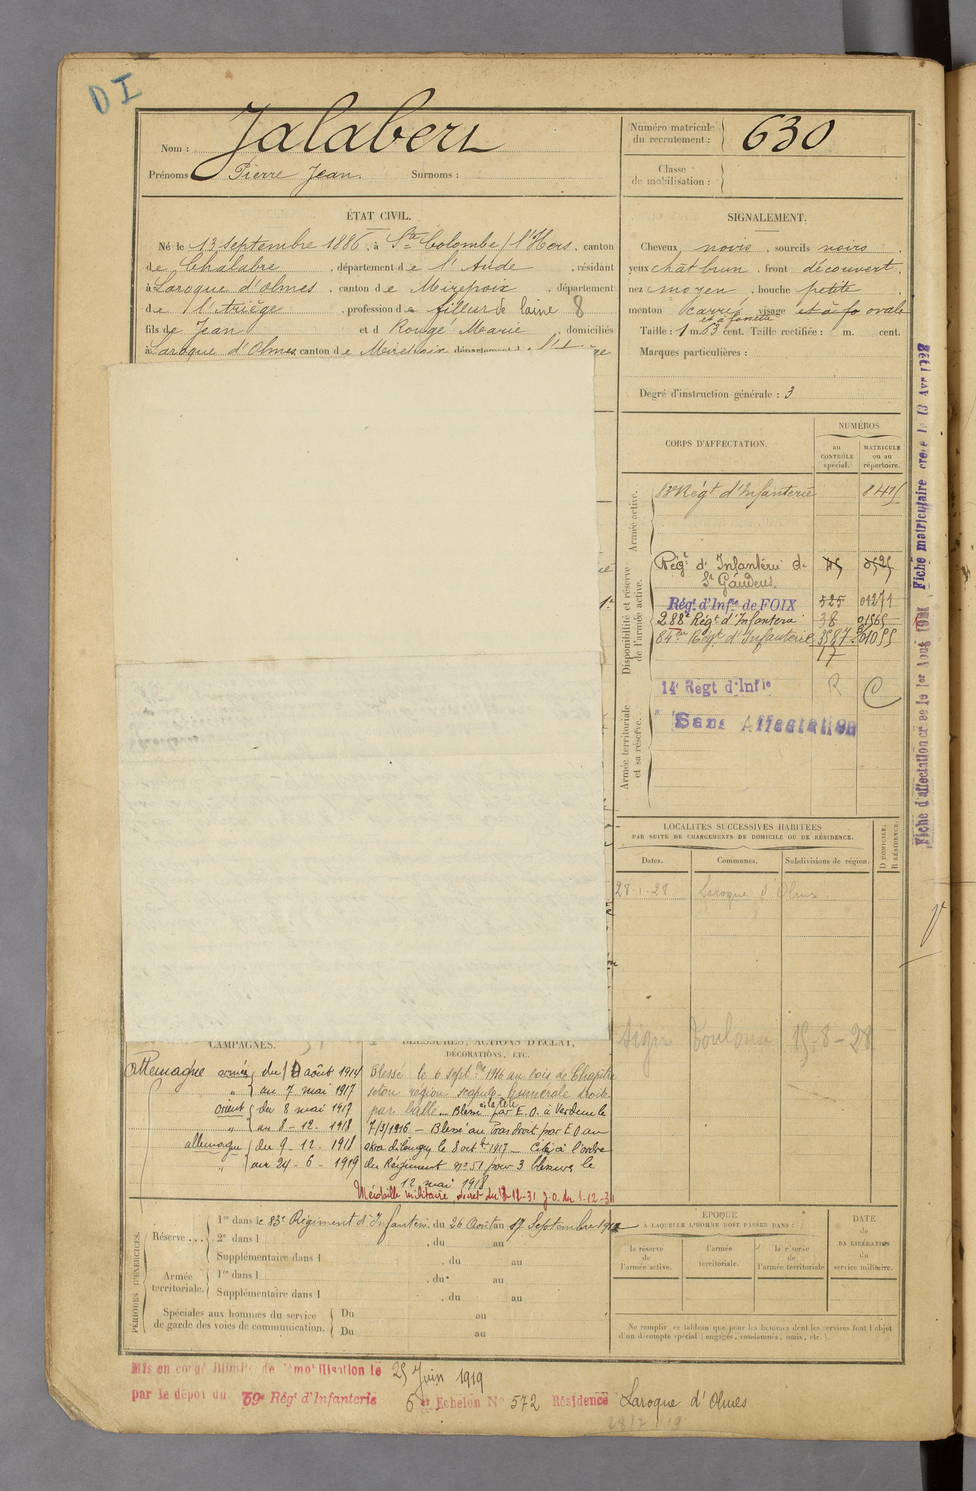 DI
Nom : Jalabert
Prénoms Pierre Jean. Surnoms :
Numéro matricule du recrutement : 630
Classe de mobilisation :
ÉTAT CIVIL.
Né le 13 septembre 1886, à Ste Colombe s/ l'Hers, canton
de Chalabre, département de l'Aude, résidant
à Laroque d'olmes, canton de Mirepoix, département
de l'Ariège, profession de fileur de laine 8
fils de Jean et de Rougé Marie, domiciliés
à Laroque d'Olmes canton de Mirepoix département de
SIGNALEMENT.
Cheveux noirs, sourcils noirs
yeux chât brun, front découvert,
nez moyen, bouche petite
menton carré, visage et à fo ovale
et à fossette
Taille : 1 m. 63 cent. Taille rectifiée : m. cent.
Marques particulières :
Degré d'instruction générale : 3
CORPS D'AFFECTATION.
NUMÉROS
au CONTRÔLE spécial.
MATRICULE ou au répertoire.
Armée active.
Régt d'Infanterie
Disponibilité et réserve de l'armée active.
Régt d'Infanterie de
St Gaudens.
Régt d'Infie de FOIX 525 01271
288e Régt d'Infanterie 38 01565
Régt d'Infanterie
17
Armée territoriale et sa réserve.
14e Regt d'Infie R C
Sans Affectation
Fiche d'affectation créée le 1er Août
Fiche matriculaire créée le 13 Avr
LOCALITÉS SUCCESSIVES HABITÉES
PAR SUITE DE CHANGEMENTS DE DOMICILE OU DE RÉSIDENCE.
D DOMICILE.
R RÉSIDENCE.
Dates. Communes. Subdivisions de région.
28-1-28 Laroque d'Olmes
Toulouse 15-8-28
CAMPAGNES.
Allemagne armées du août 1914
" au 7 mai 1917
orient du 8 mai 1917
" au 8-12-1918
allemagne du 9-12-1918
" au 24-6-1919
BLESSURES, ACTIONS D'ÉCLAT,
DÉCORATIONS, ETC.
Blessé le 6 septbre 1916 au bois de Chapitre
séton région scapulo-humérale droite
par balle. Blessé à la tête par E.O. à Verdun le
7/3/1916 – Blessé au Bras droit par E O au
le 8 octbre 1917 – Cité à l'ordre
du Régiment No 51 pour 3 blessures le
12 mai 1918
Médaille militaire, décret du J.O. du 1-12-31
PÉRIODES D'EXERCICES.
Réserve...
1re dans le 83e Régiment d'Infanterie, du 26 Août au 17 Septembre
2e dans l , du au
Supplémentaire dans l , du au
Armée territoriale.
1re dans l , du au
Supplémentaire dans l , du au
Spéciales aux hommes du service de garde des voies de communication.
Du au
Du au
ÉPOQUE
À LAQUELLE L'HOMME DOIT PASSER DANS :
la réserve de l'armée active.
l'armée territoriale.
la réserve de l'armée territoriale
DATE de LA LIBÉRATION du service militaire.
Ne remplir ce tableau que pour les hommes dont les services font l'objet
d'un décompte spécial (engagés, condamnés, omis, etc.).
Mis en congé illimité de démobilisation le 25 Juin 1919
par le dépôt du 59e Régt d'Infanterie 6er Echelon No 572 Résidence Laroque d'Olmes